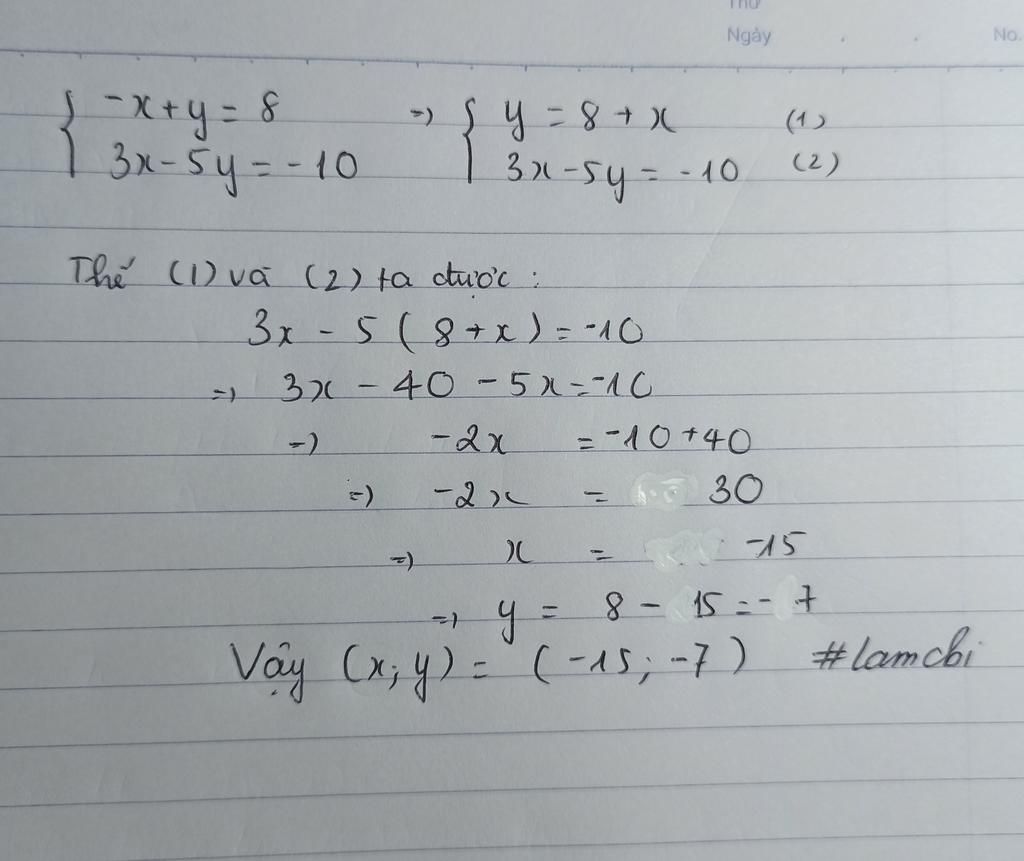 Thứ
Ngày No.
{ -x + y = 8 => { y = 8 + x (1)
3x - 5y = -10 3x - 5y = -10 (2)
Thế (1) và (2) ta được :
3x - 5 ( 8 + x ) = -10
=> 3x - 40 - 5x = -10
=> -2x = -10 + 40
=> -2x = 30
=> x = -15
=> y = 8 - 15 = - 7
Vậy (x; y) = (-15; -7) #lamchi